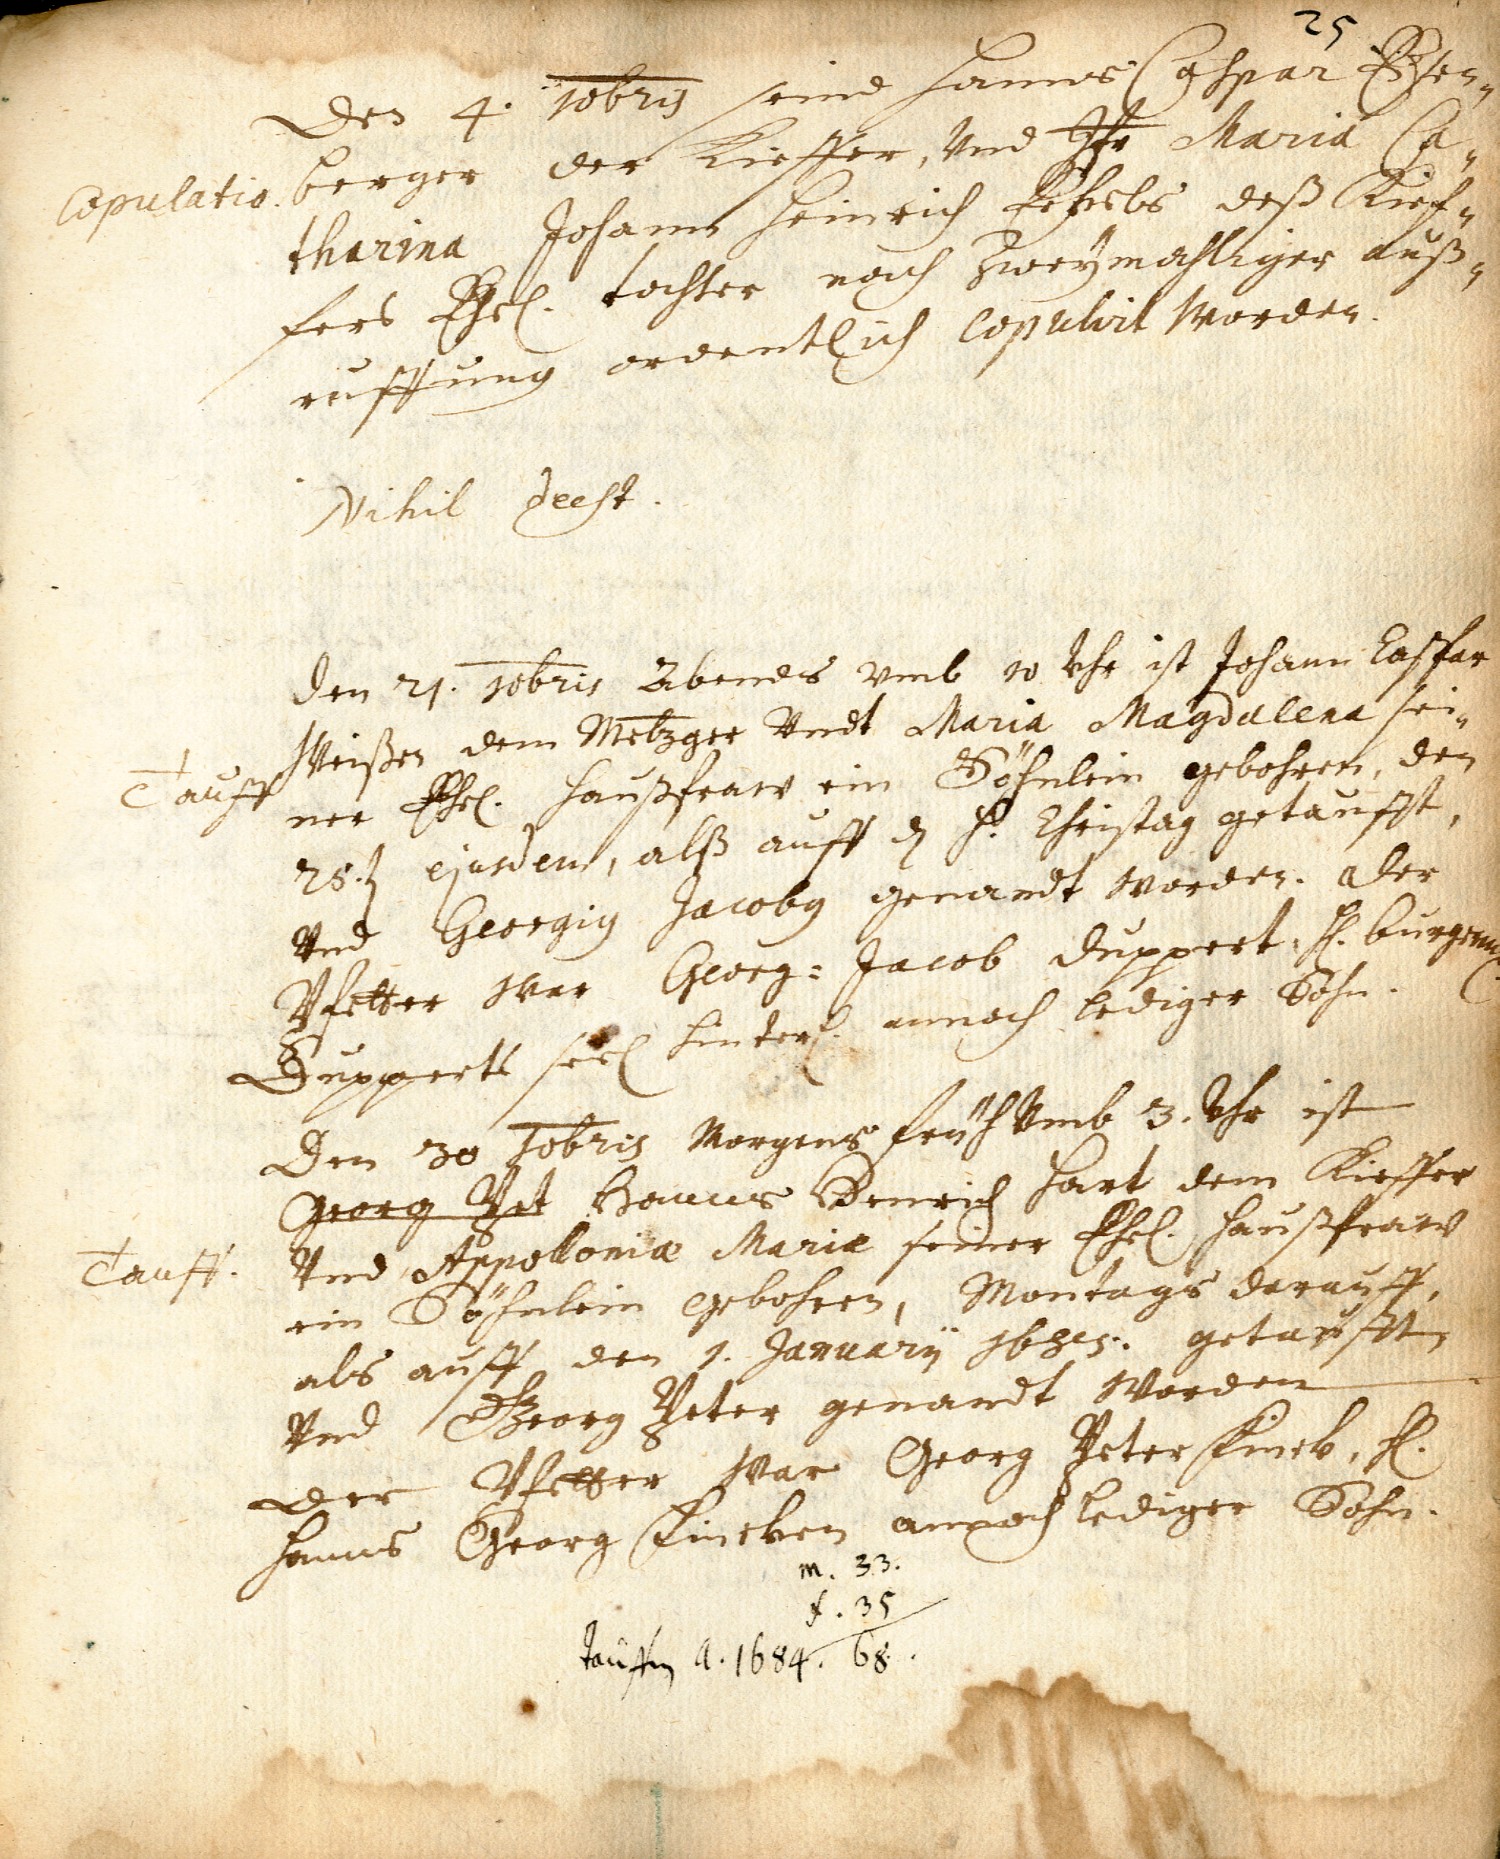 25
Den 4. 10bris seind Hanns Caspar Eysen-
berger der Kieffer, Und Jfr Maria Ca-
Copulatio.
tharina Johann Heinrich deß Kief-
fers Ehel. tochter nach Zweymahliger auß-
ruffung ordentlich copulirt worden.
Nihil deest.
Den 21. 10bris Abends umb 10 Uhr ist Johann Caspar
Weißen dem Metzger Undt Maria Magdalena sei-
Tauff
ner Ehel. Haußfraw ein Söhnlein gebohren, den
25.t ejusdem, alß auff d H. Christag getaufft,
Und Georgius Jacobus genandt worden. Der
Pfetter war Georg: Jacob Duppert, H. burgerm.
Dupperts seel hinterl. annoch lediger Sohn.
Den 30 10bris Morgens früh Umb 3. Uhr ist
Georg Pet Hanns Henrich Hart dem Kieffer
Tauff.
Und Appolloniæ Mariæ seiner Ehel. Haußfraw
ein Söhnlein gebohren, Montags darauff,
als auff den 1. Januarij 1685. getaufft
Und Georg Peter genandt worden
Der Pfetter war Georg Peter Finck, H.
Hanns Georg Fincken annoch lediger Sohn.
m. 33.
f. 35
tauffen A. 1684. 68.